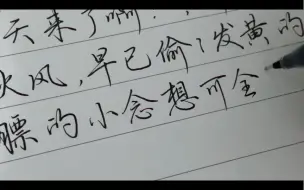 天来了啊
火风,早已偷 发黄的
膘的小念想可全